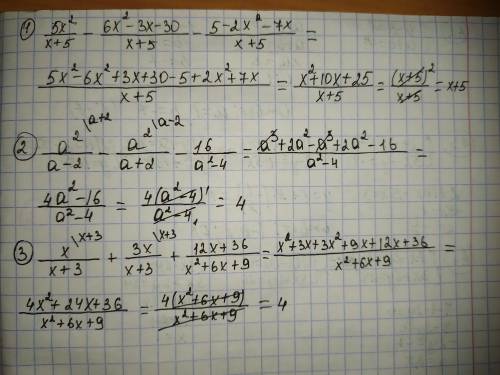 ① 5x²/(x+5) - (6x²-3x-30)/(x+5) - (5-2x²-7x)/(x+5) =
(5x²-6x²+3x+30-5+2x²+7x)/(x+5) = (x²+10x+25)/(x+5) = (x+5)²/(x+5) = x+5
② a²\a+2/(a-2) - a²\a-2/(a+2) - 16/(a²-4) = (a³+2a²-a³+2a²-16)/(a²-4) =
(4a²-16)/(a²-4) = 4(a²-4)¹/(a²-4)₁ = 4
③ x\x+3/(x+3) + 3x\x+3/(x+3) + (12x+36)/(x²+6x+9) = (x²+3x+3x²+9x+12x+36)/(x²+6x+9) =
(4x²+24x+36)/(x²+6x+9) = 4(x²+6x+9)/(x²+6x+9) = 4